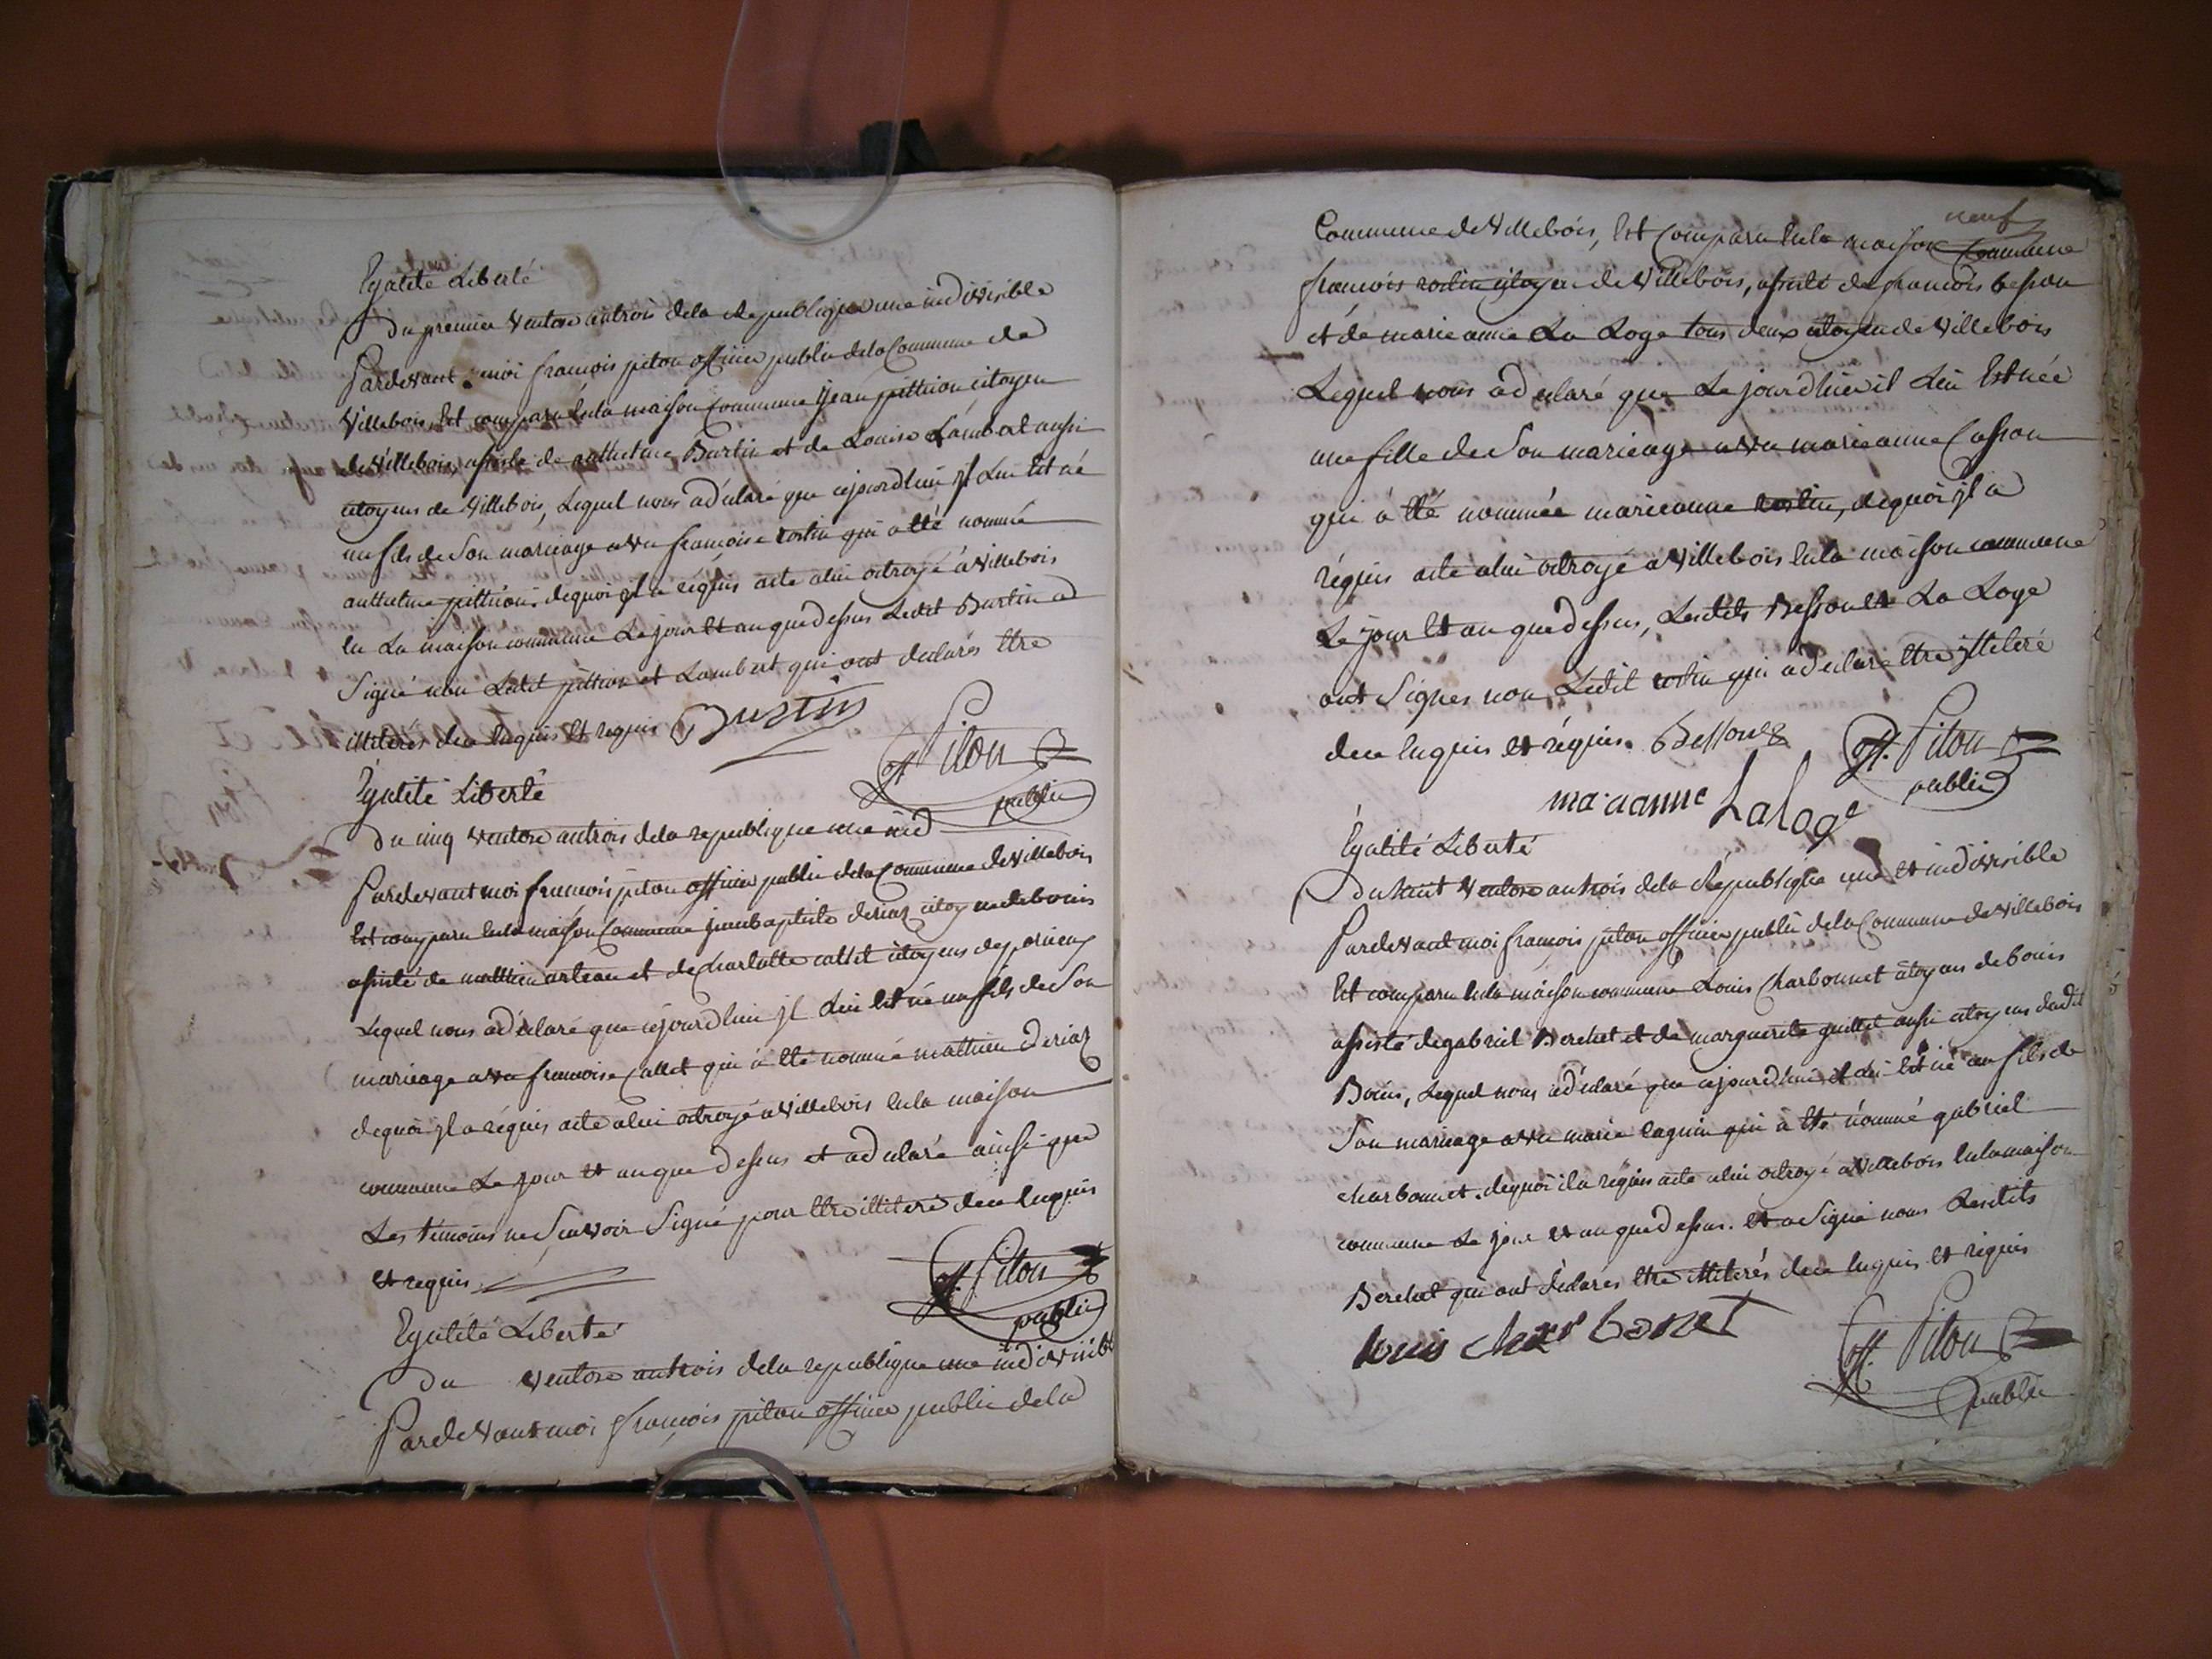 Egalité Liberté
Du premier Ventose antrois dela Republique une indivisible
Pardevant moi françois piton officier public dela Commune de
Villebois, Est comparu enla maison Commune jean pittion citoyen
de Villebois, assisté de anthelme Burtin et de Louise Lambert aussi
citoyens de Villebois, Lequel nous adéclaré que cejourdhui jl Lui Est né
un fils de Son mariage avec francoise rostin qui a Eté nommé
anthelme pittion dequoi jl a réquis acte alui octroyé à Villebois
En La maison commune Le jour Et an que dessus Ledit Burtin ad
Signé non Ledit pittion et Lambert qui ont declarés Etre
illiterés dece Enquis Et requis Burtin
off. Piton
public
Egalité Liberté
Du cinq Ventose antrois dela republique une ind
Pardevant moi francois piton officier public dela Commune de Villebois
Est comparu Enla maison Commune jeanbaptiste deriaz citoyen debouis
assisté de mathieu arteau et de charlotte callet citoyens de
Lequel nous adéclaré que cejourdhui jl Lui Est né un fils de Son
mariage avec francoise Callet qui à Eté nommé mathieu deriaz
dequoi jl a réquis acte alui octroyé a Villebois Enla maison
commune Le jour Et an que dessus et adeclaré ainsi que
Les témoins ne Scavoir Signé pour Etre illiteré dece Enquis
Et requis
off. Piton
public
Egalité Liberté
Du Ventose antrois dela republique une indivisible
Pardevant moi françois piton officier public dela
neuf
Commune de Villebois, Est Comparu Enla maison Commune
françois rostin citoyen de Villebois, assisté de francois besson
et de marie anne La Loge tous deux citoyen de Villebois
Lequel nous adeclaré que Lejourdhui il Lui Est née
une fille de Son mariage avec marieanne Casson
qui à Eté nommée marieanne rostin, dequoi jl a
réquis acte alui octroyé à Villebois Enla maison commune
Le jour Et an que dessus, Lesdits Besson Et La Loge
ont Signes non Ledit rostin qui adeclaré Etre jlliteré
dece Enquis et réquis. Besson
off. Piton
public
marianne Laloge
Egalité Liberté
Du huit Ventose antrois dela République une et indivisible
Pardevant moi françois piton officier public dela Commune de Villebois
Est comparu Enla maison commune Louis Charbonnet citoyen de bouis
assisté degabriel Berchet et de marguerite guillet aussi citoyens dudit
Bouis, Lequel nous adéclaré que cejourdhui il Lui Est né un fils de
Son mariage avec marie cagnin qui à Eté nommé gabriel
charbonnet. dequoi il a réquis acte alui octroyé a Villebois Enla maison
commune Le jour et an que dessus. Et a Signé nous Lesdits
Berchet qui ont déclarés Etre illiterés dece Enquis et réquis
louis charbonet
off. Piton
public